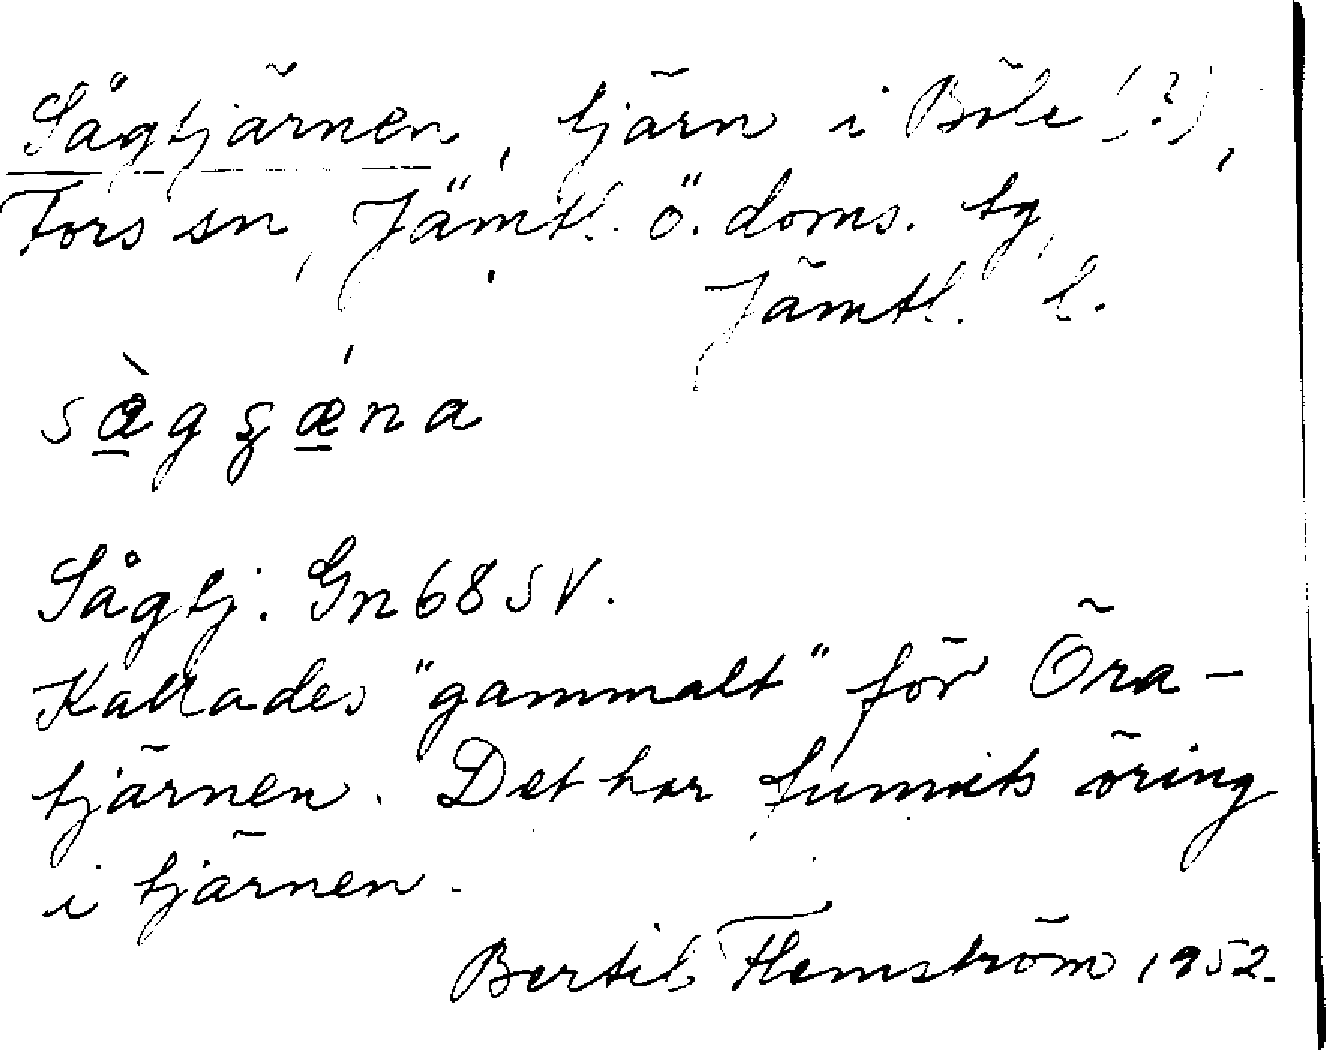 Sågtjärnen, tjärn i Böle (?),
Fors sn, Jämtl. ö. doms. tg,
Jämtl. l.
sæ̀gʂæna
Sågtj. Gn 68 SV.
Kallades "gammalt" för Öra-
tjärnen. Det har funnits öring
i tjärnen.
Bertil Flemström 1952.